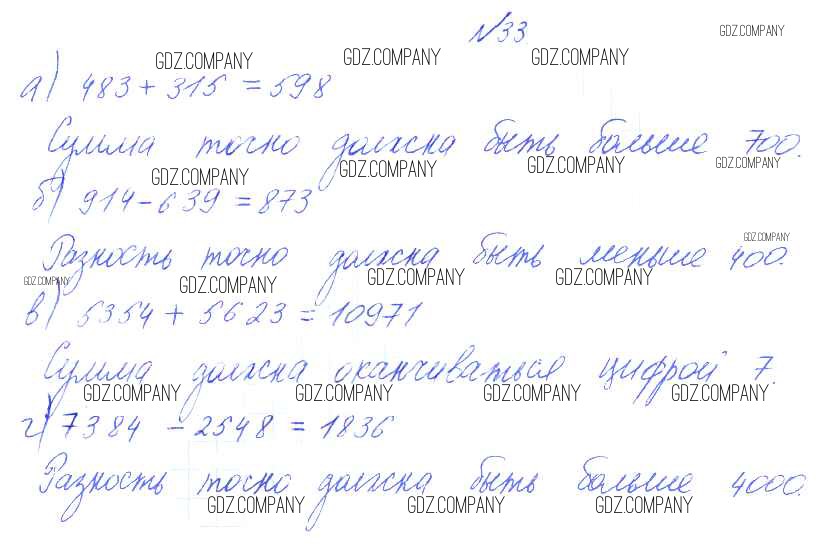 №33
GDZ.COMPANY
GDZ.COMPANY GDZ.COMPANY GDZ.COMPANY
а) 483 + 315 = 598
Сумма точно должна быть больше 700.
GDZ.COMPANY GDZ.COMPANY GDZ.COMPANY GDZ.COMPANY
б) 914 - 639 = 873
GDZ.COMPANY
Разность точно должна быть меньше 400.
GDZ.COMPANY GDZ.COMPANY GDZ.COMPANY GDZ.COMPANY
в) 5354 + 5623 = 10971
Сумма должна оканчиваться цифрой 7.
GDZ.COMPANY GDZ.COMPANY GDZ.COMPANY GDZ.COMPANY
г) 7384 - 2548 = 1836
Разность точно должна быть больше 4000.
GDZ.COMPANY GDZ.COMPANY GDZ.COMPANY